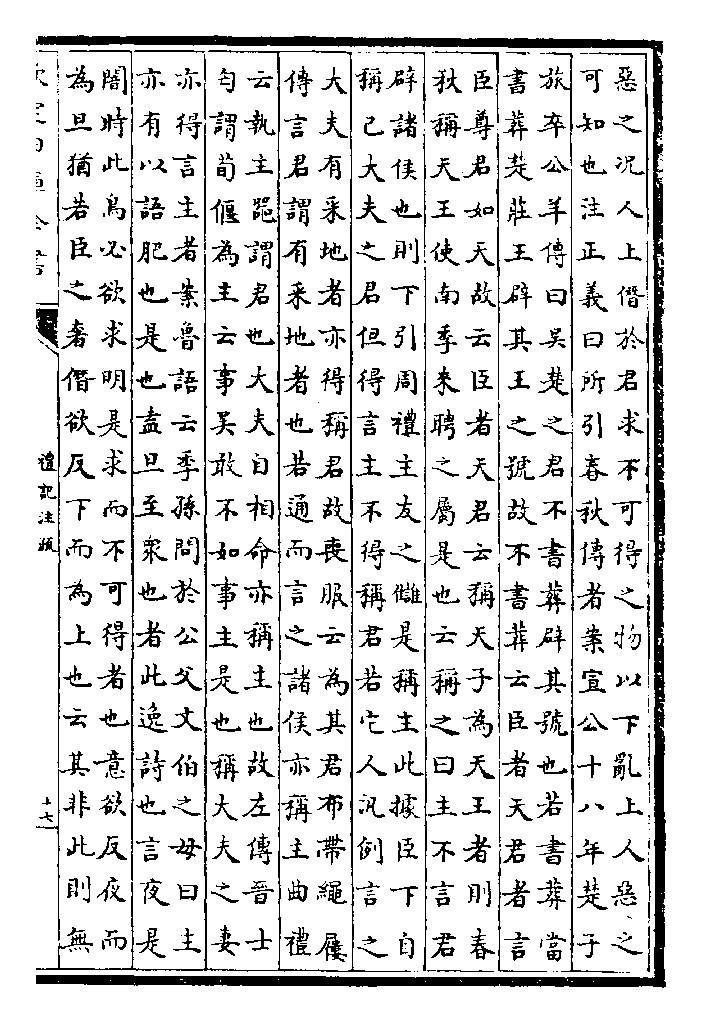 惡之况人上僭於君求不可得之物以下亂上人惡之
可知也注正義曰所引春秋傳者案宣公十八年楚子
旅卒公羊傳曰吳楚之君不書葬辟其號也若書葬當
書葬楚莊王辟其王之號故不書葬云臣者天君者言
臣尊君如天故云臣者天君云稱天子為天王者則春
秋稱天王使南季來聘之屬是也云稱之曰主不言君
辟諸侯也則下引周禮主友之讎是稱主此據臣下自
稱己大夫之君但得言主不得稱君若它人汎例言之
大夫有采地者亦得稱君故喪服云為其君布帶繩屨
傳言君謂有采地者也若通而言之諸侯亦稱主曲禮
云執主器謂君也大夫自相命亦稱主也故左傳晉士
匄謂荀偃為主云事吳敢不如事主是也稱大夫之妻
亦得言主者案魯語云季孫問於公父文伯之母曰主
亦有以語肥也是也盍旦至衆也者此逸詩也言夜是
闇時此鳥必欲求明是求而不可得者也意欲反夜而
為旦猶若臣之奢僭欲反下而為上也云其非此則無
禮記注疏
十七